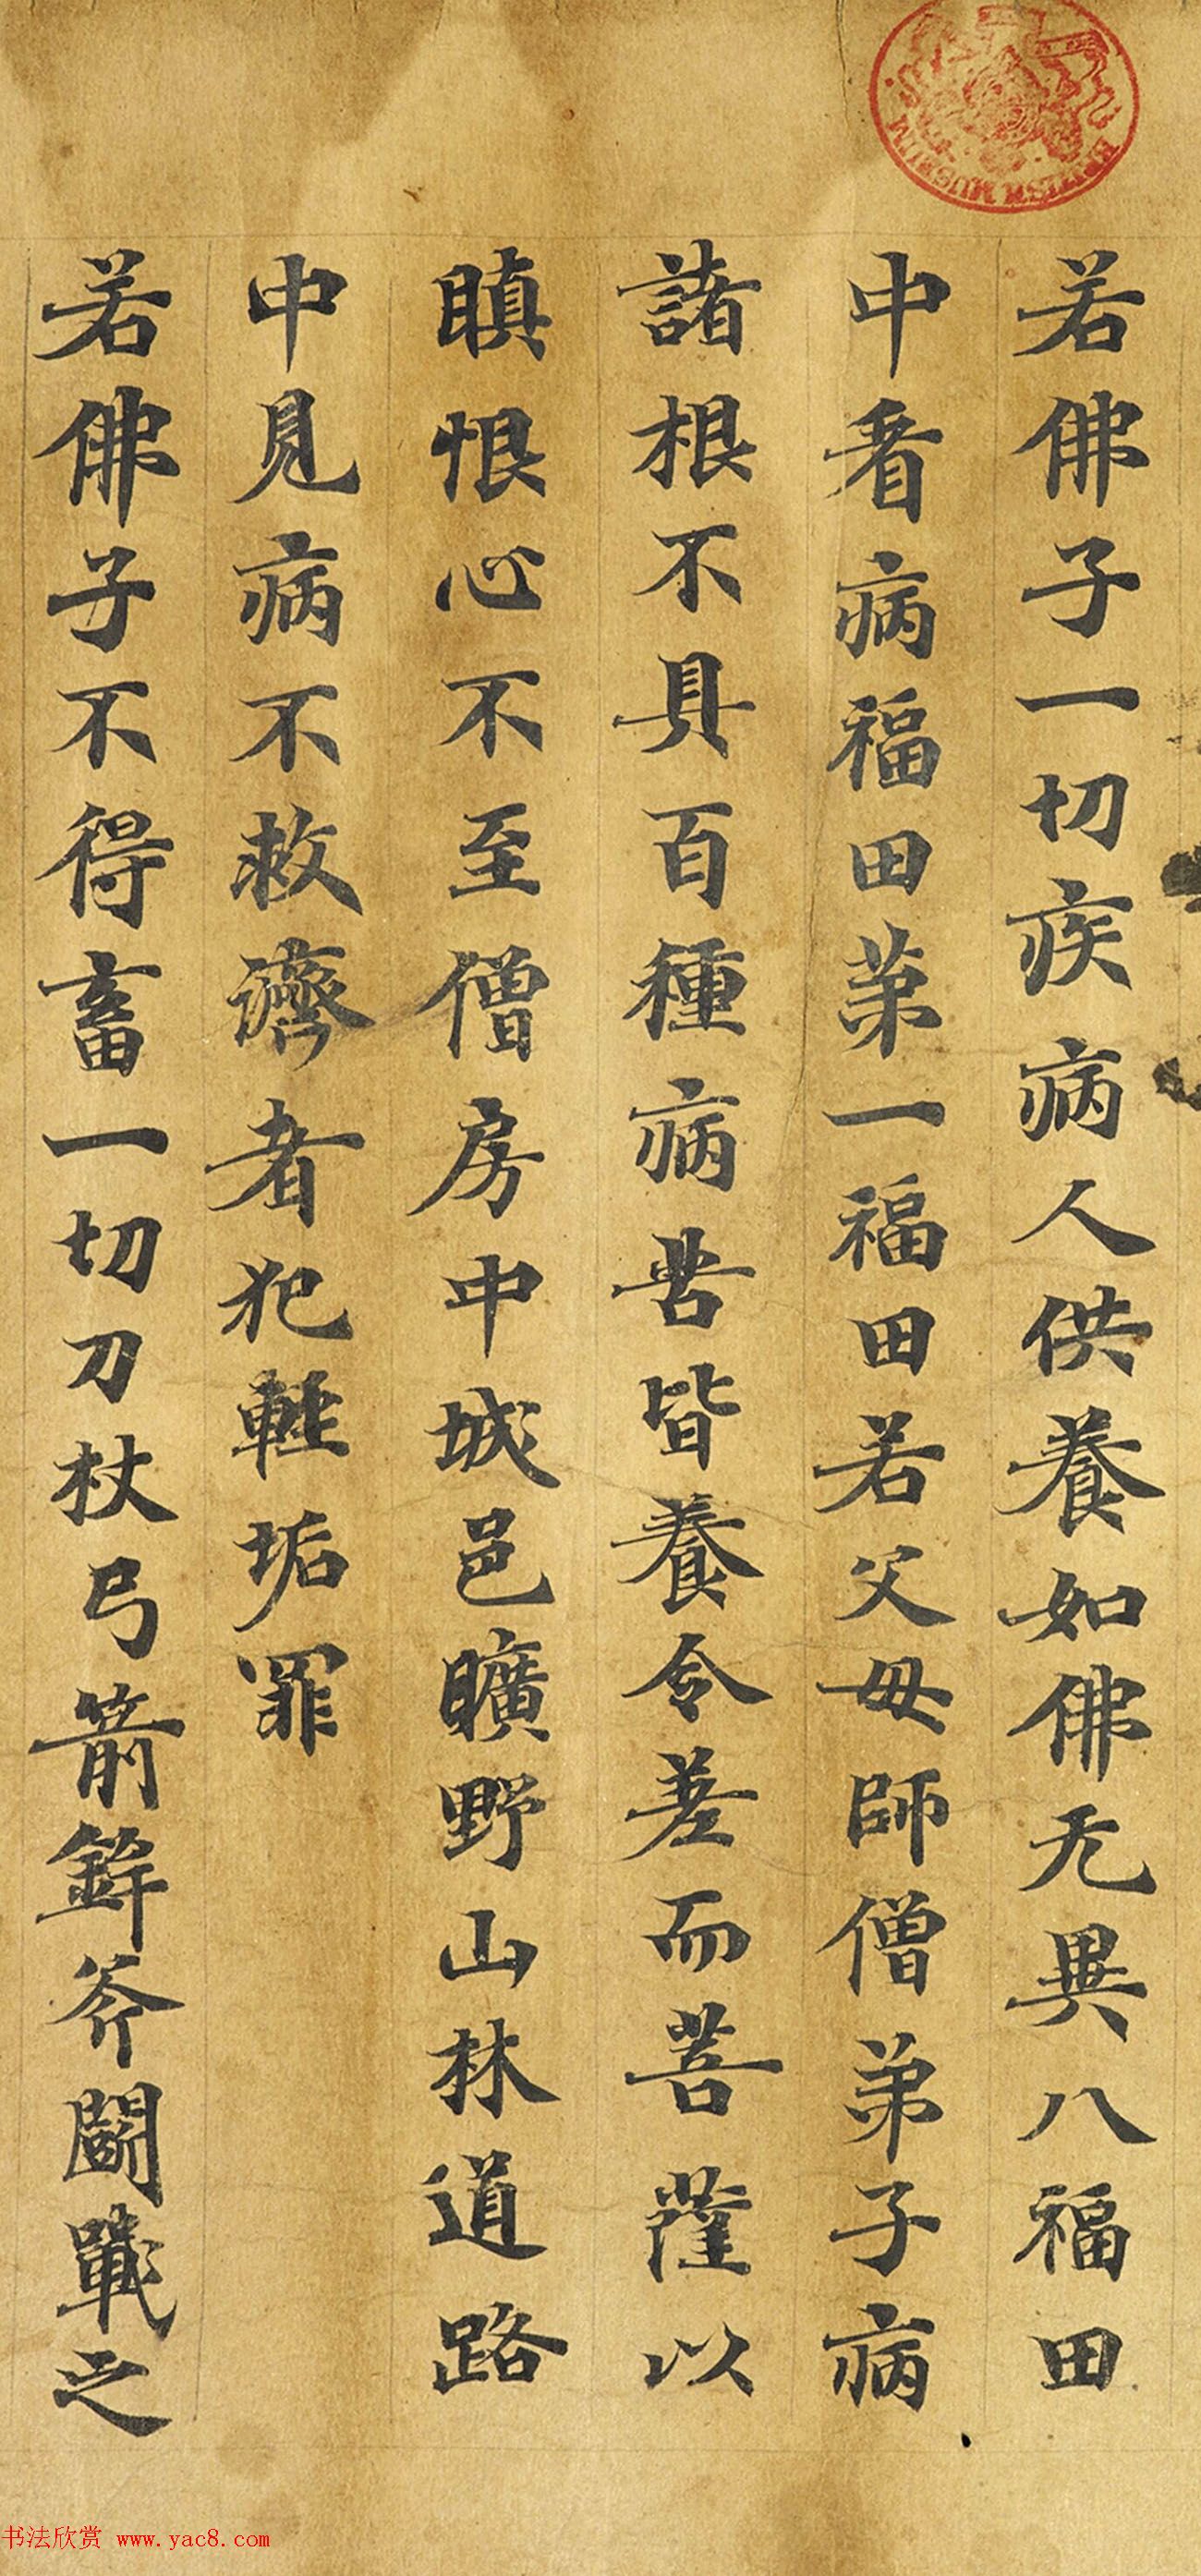 若佛子一切疾病人供養如佛无異八福田
中看病福田苐一福田若父母師僧弟子病
諸根不具百種病苦皆養令差而菩薩以
瞋恨心不至僧房中城邑曠野山林道路
中見病不救濟者犯輕垢罪
若佛子不得畜一切刀杖弓箭鉾斧鬪戰之
BRITISH MUSEUM
书法欣赏 www.yac8.com